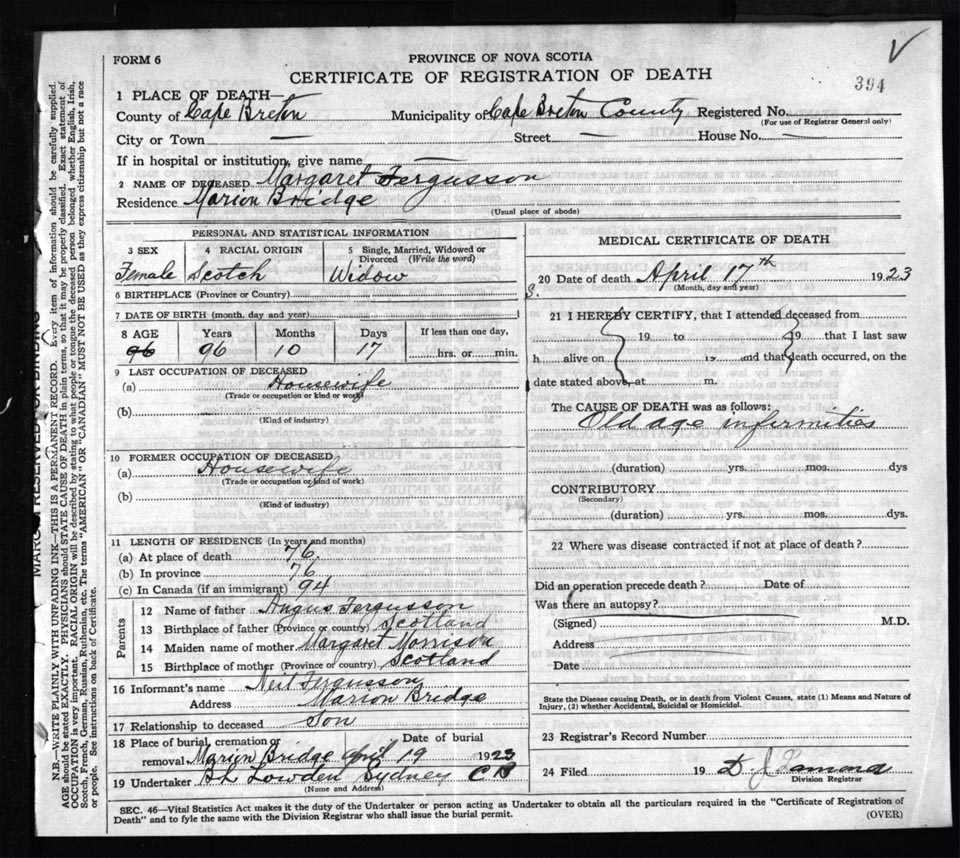 FORM 6
PROVINCE OF NOVA SCOTIA
CERTIFICATE OF REGISTRATION OF DEATH
394
1 PLACE OF DEATH—
County of Cape Breton Municipality of Cape Breton County Registered No.
(For use of Registrar General only)
City or Town — Street — House No. —
If in hospital or institution, give name —
2 NAME OF DECEASED Margaret Fergusson
Residence Marion Bridge
(Usual place of abode)
PERSONAL AND STATISTICAL INFORMATION
3 SEX 4 RACIAL ORIGIN 5 Single, Married, Widowed or Divorced (Write the word)
Female Scotch Widow
6 BIRTHPLACE (Province or Country)
7 DATE OF BIRTH (month, day and year)
8 AGE Years Months Days If less than one day,
96 96 10 17 hrs. or min.
9 LAST OCCUPATION OF DECEASED
(a) Housewife
(Trade or occupation or kind or work)
(b)
(Kind of industry)
10 FORMER OCCUPATION OF DECEASED
(a) Housewife
(Trade or occupation or kind of work)
(b)
(Kind of industry)
11 LENGTH OF RESIDENCE (In years and months)
(a) At place of death 76
(b) In province 76
(c) In Canada (if an immigrant) 94
Parents
12 Name of father Angus Fergusson
13 Birthplace of father (Province or country) Scotland
14 Maiden name of mother Margaret Morrison
15 Birthplace of mother (Province or country) Scotland
16 Informant's name Neil Fergusson
Address Marion Bridge
17 Relationship to deceased Son
18 Place of burial, cremation or removal Marion Bridge Date of burial April 19 1923
19 Undertaker Lowden Sydney C B
(Name and Address)
MEDICAL CERTIFICATE OF DEATH
20 Date of death April 17th 1923
(Month, day and year)
21 I HEREBY CERTIFY, that I attended deceased from
19 to 19 that I last saw
h alive on 19 and that death occurred, on the
date stated above, at m.
The CAUSE OF DEATH was as follows:
Old age infirmities
(duration) yrs. mos. dys
CONTRIBUTORY
(Secondary)
(duration) yrs. mos. dys.
22 Where was disease contracted if not at place of death?
Did an operation precede death? Date of
Was there an autopsy?
(Signed) M.D.
Address
Date
State the Disease causing Death, or in death from Violent Causes, state (1) Means and Nature of
Injury, (2) whether Accidental, Suicidal or Homicidal.
23 Registrar's Record Number
24 Filed 19
Division Registrar
SEC. 46—Vital Statistics Act makes it the duty of the Undertaker or person acting as Undertaker to obtain all the particulars required in the "Certificate of Registration of
Death" and to fyle the same with the Division Registrar who shall issue the burial permit.
(OVER)
RESERVED FOR BINDING
N.B.—WRITE PLAINLY WITH UNFADING INK—THIS IS A PERMANENT RECORD. Every item of information should be carefully supplied.
AGE should be stated EXACTLY. PHYSICIANS should STATE CAUSE OF DEATH in plain terms, so that it may be properly classified. Exact statement of
OCCUPATION is very important. RACIAL ORIGIN will be described by stating to what people or tongue the deceased person belonged whether English, Irish,
Scotch, French, German, Russian, Ruthenian, etc. The terms "AMERICAN" or "CANADIAN" MUST NOT BE USED as they express citizenship but not a race
or people. See instructions on back of Certificate.